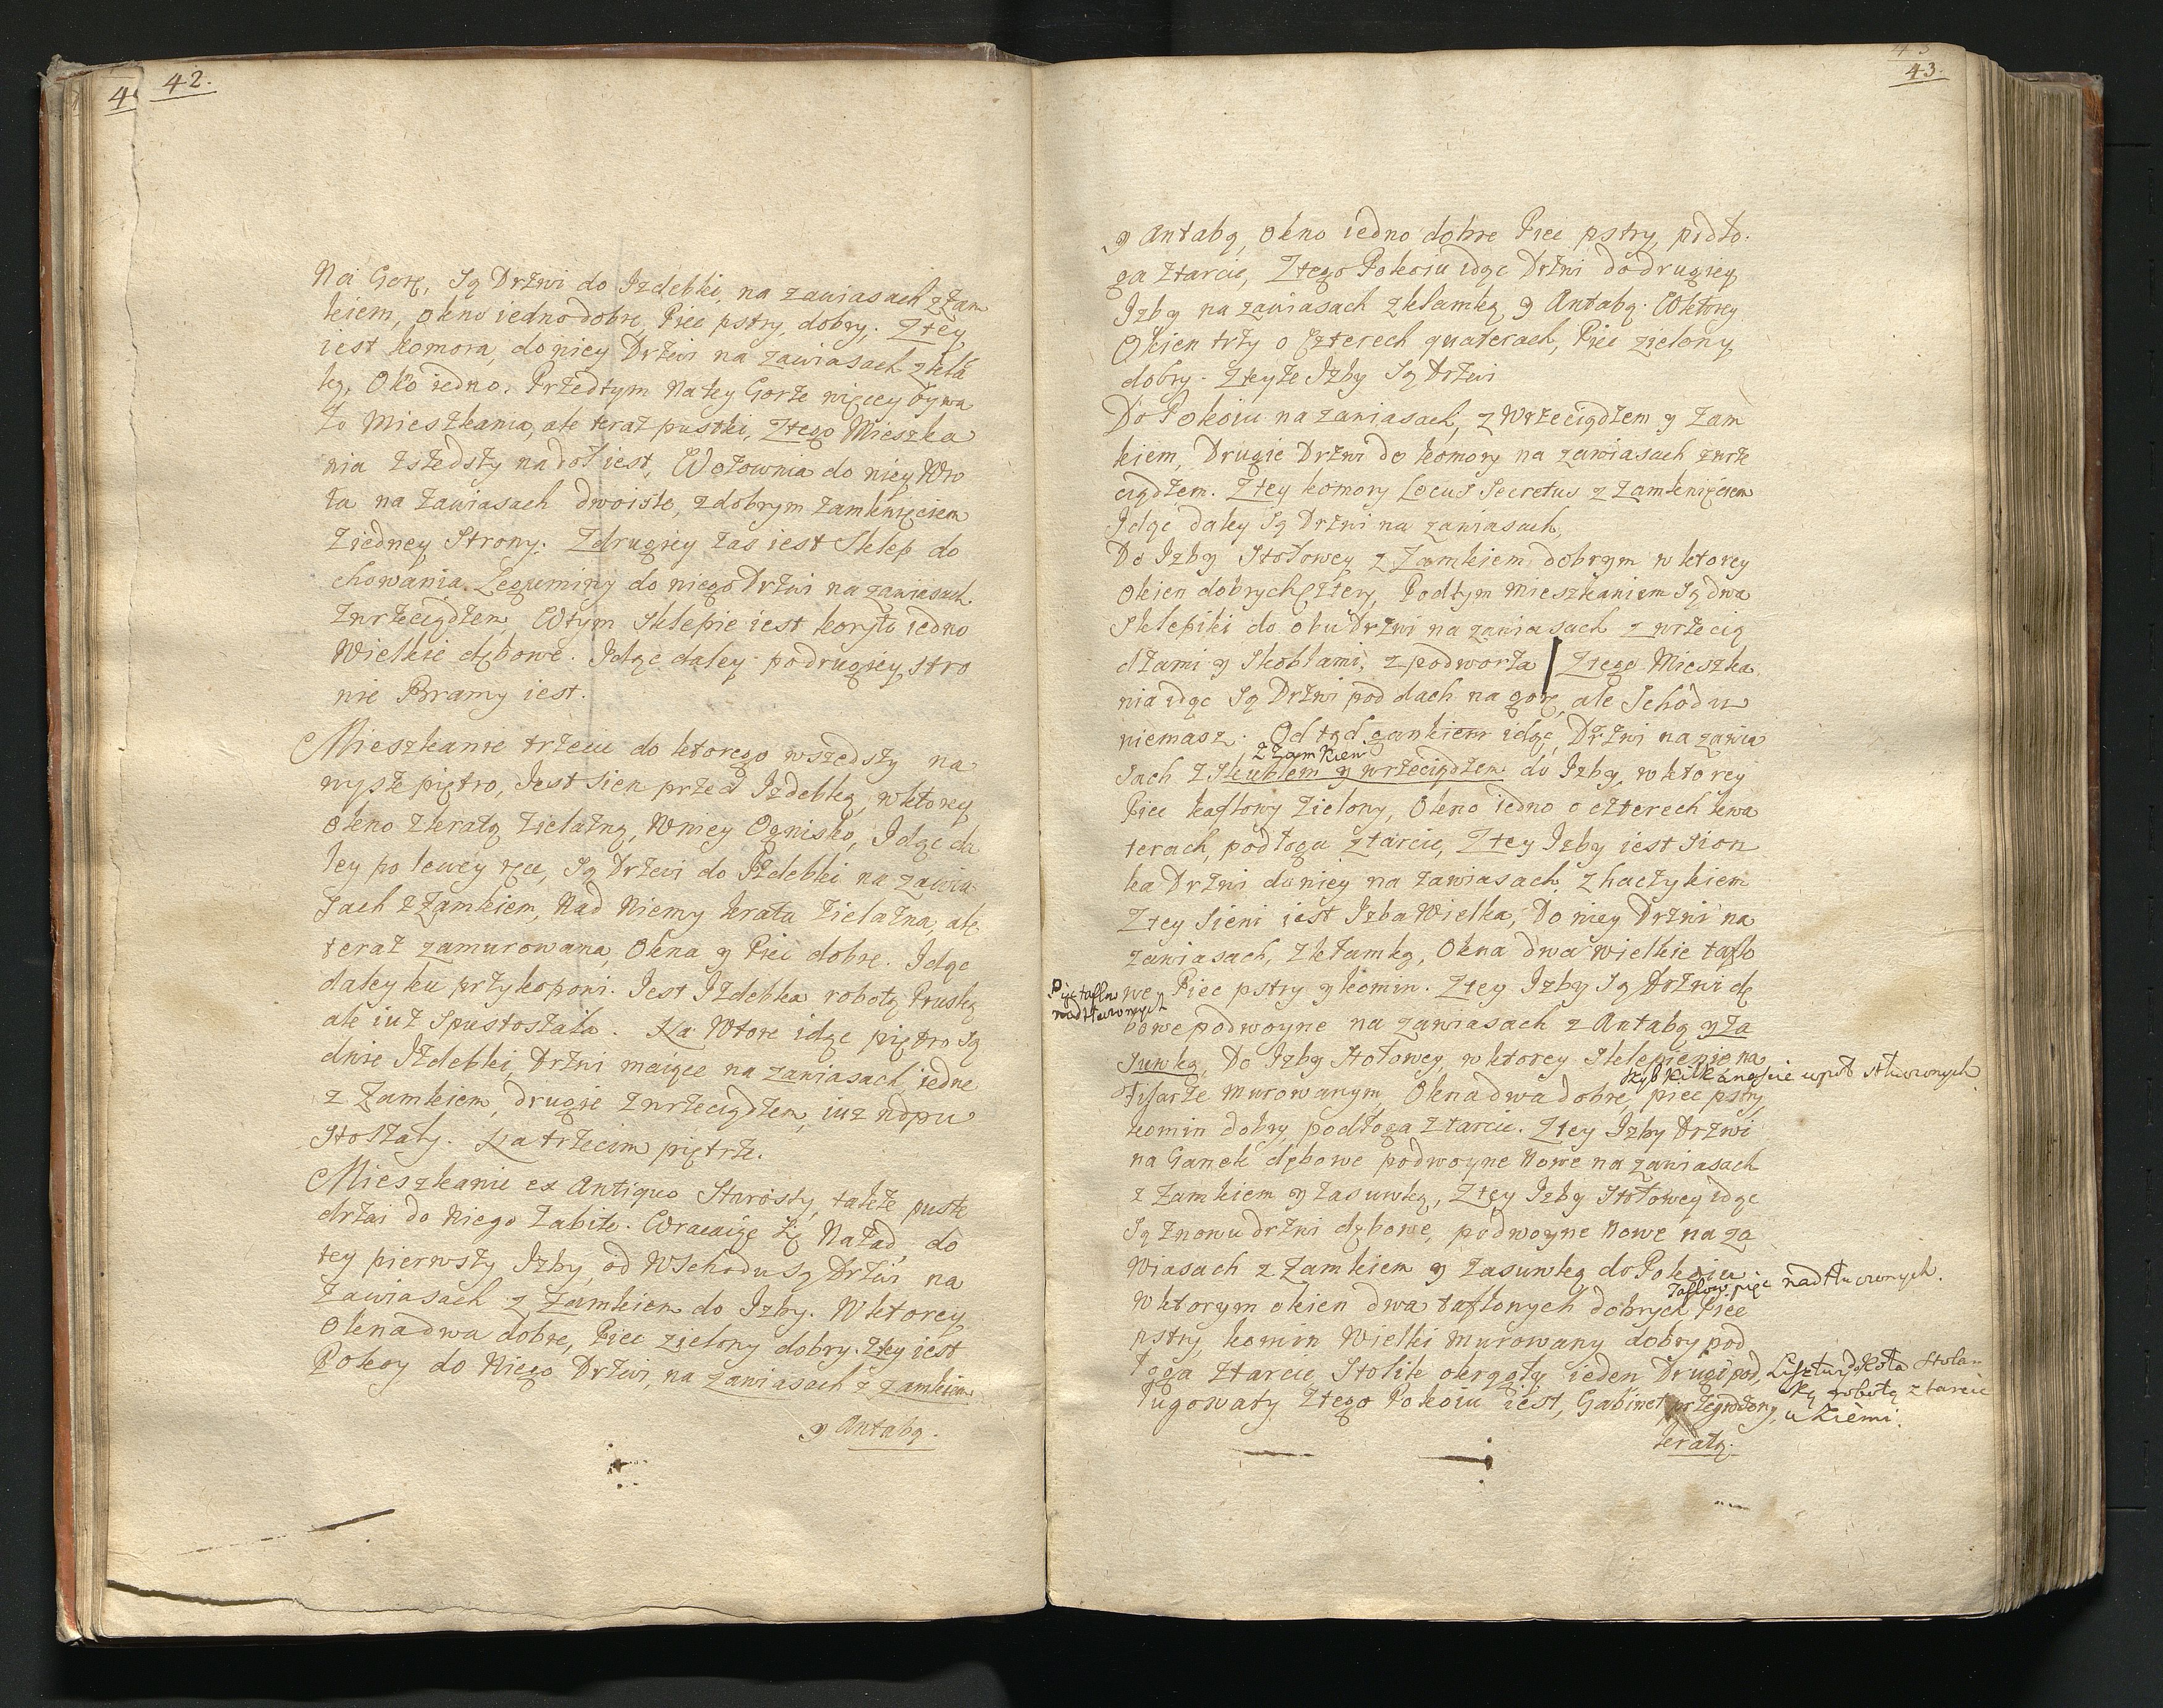 42.
Na Gorę, Są Drzwi do Izdebki, na zawiasach z Zam
kiem, okno iedno dobre, Piec pstry, dobry. Z tey
iest komora, do niey Drzwi na zawiasach z kła
ką, Oko iedno. Przedtym na tey Gorze więcey bywa
ło Mieszkania, ale teraz pustki, Z tego Mieszka
nia zszedszy na doł iest, Wozownia do niey Wro
ta na zawiasach dwoiste, z dobrym zamknięciem
Z iedney Strony. Z drugiey zas iest Sklep do
chowania Leguminy do niego Drzwi na zawiasach
z wrzeciądzem, W tym Sklepie iest koryto iedno
Wielkie dębowe. Idąc daley po drugiey stro
nie Bramy iest.
Mieszkanie trzecie do ktorego wszedszy na
wysze piętro, Iest sien przed Izdebką, w ktorey
okno z kratą żielazną, W niey Ognisko, Idąc da
ley po lewey ręce, Są Drzwi do Izdebki na zawia
sach z Zamkiem, Nad Niemy krata żielazna, ale
teraz zamurowana, Okna y Piec dobre. Idąc
daley ku przykopowi. Iest Izdebka robotą Pruską
ale iuz spustoszała. Na Wtore idąc piętro są
dwie Izdebki, Drzwi maiące na zawiasach iedne
z Zamkiem, drugie z wrzeciądzem, iuz nadpu
stoszały. Na trzecim piętrze.
Mieszkanie ex Antiquo Starosty, także puste
drzwi do Niego zabite. Wracaiąc się Nazad, do
tey pierwszy Izby, od Wschodu są Drzwi na
Zawiasach z Zamkiem do Izby. W ktorey
okna dwa dobre, Piec zielony dobry. Z tey iest
Pokoy do Niego Drzwi, na zawiasach z zamkiem
y Antabą.
43.
y Antabą, okno iedno dobre Piec pstry, podło
ga z tarcic, Z tego Pokoiu idąc Drzwi do drugiey
Izby na zawiasach z klamką y Antabą. W ktorey
Okien trzy o czterech quaterach, Piec zielony
dobry. Z teyże Izby Są Drzwi
Do Pokoiu na zawiasach, z Wrzeciądzem y Zam
kiem, Drugie Drzwi do komory na zawiasach z wrze
ciądzem. Z tey komory Locus Secretus z Zamknięciem
Idąc daley Są Drzwi na zawiasach,
Do Izby Stołowey z Zamkiem dobrym w ktorey
okien dobrych cztery, Pod tym mieszkaniem Są dwa
Sklepiki do obu Drzwi na zawiasach z wrzecią
dzami y Skoblami, z podworza Z tego Mieszka
nia idąc Są Drzwi pod dach na gorę, ale Schodu
niemasz. Od tąd gankiem idąc, Drzwi na zawia
z Zamkiem
sach z Skublem y wrzeciądzem do Izby, w ktorey
Piec kaflowy Zielony, Okno iedno o czterech kwa
terach, podłoga z tarcic, Z tey Izby iest Sion
ka Drzwi do niey na zawiasach z haczykiem
Z tey Sieni iest Izba Wielka, Do niey Drzwi na
zawiasach, z kłamką, Okna dwa wielkie taflo
we, Piec pstry y komin. Z tey Izby Są Drzwi dę
nadtłuczonych
bowe podwoyne na zawiasach z Antabą y Za
suwką, Do Izby Stołowey, w ktorey Sklepienie na
szyb kilkanascie w pół stłuczonych
Fisarze murowanym, Okna dwa dobre, piec pstry
komin dobry podłoga z tarcic. Z tey Izby Drzwi
na Ganek dębowe podwoyne Nowe na zawiasach
z Zamkiem y Zasuwką, Z tey Izby Stołowey idąc
Są znowu drzwi dębowe, podwoyne Nowe na za
Wiasach z Zamkiem y Zasuwką do Pokoiu
nadtłuczonych.
W ktorym okien dwa taflonych dobrych Piec
pstry, komin Wielki murowany dobry pod
łoga z tarcic, Stolik okrągły ieden Drugi pod,
Lisztwy do koła Stolar
ługowaty Z tego Pokoiu iest, Gabinet
ską robotą z tarcic
u Ziemi.
kratą.